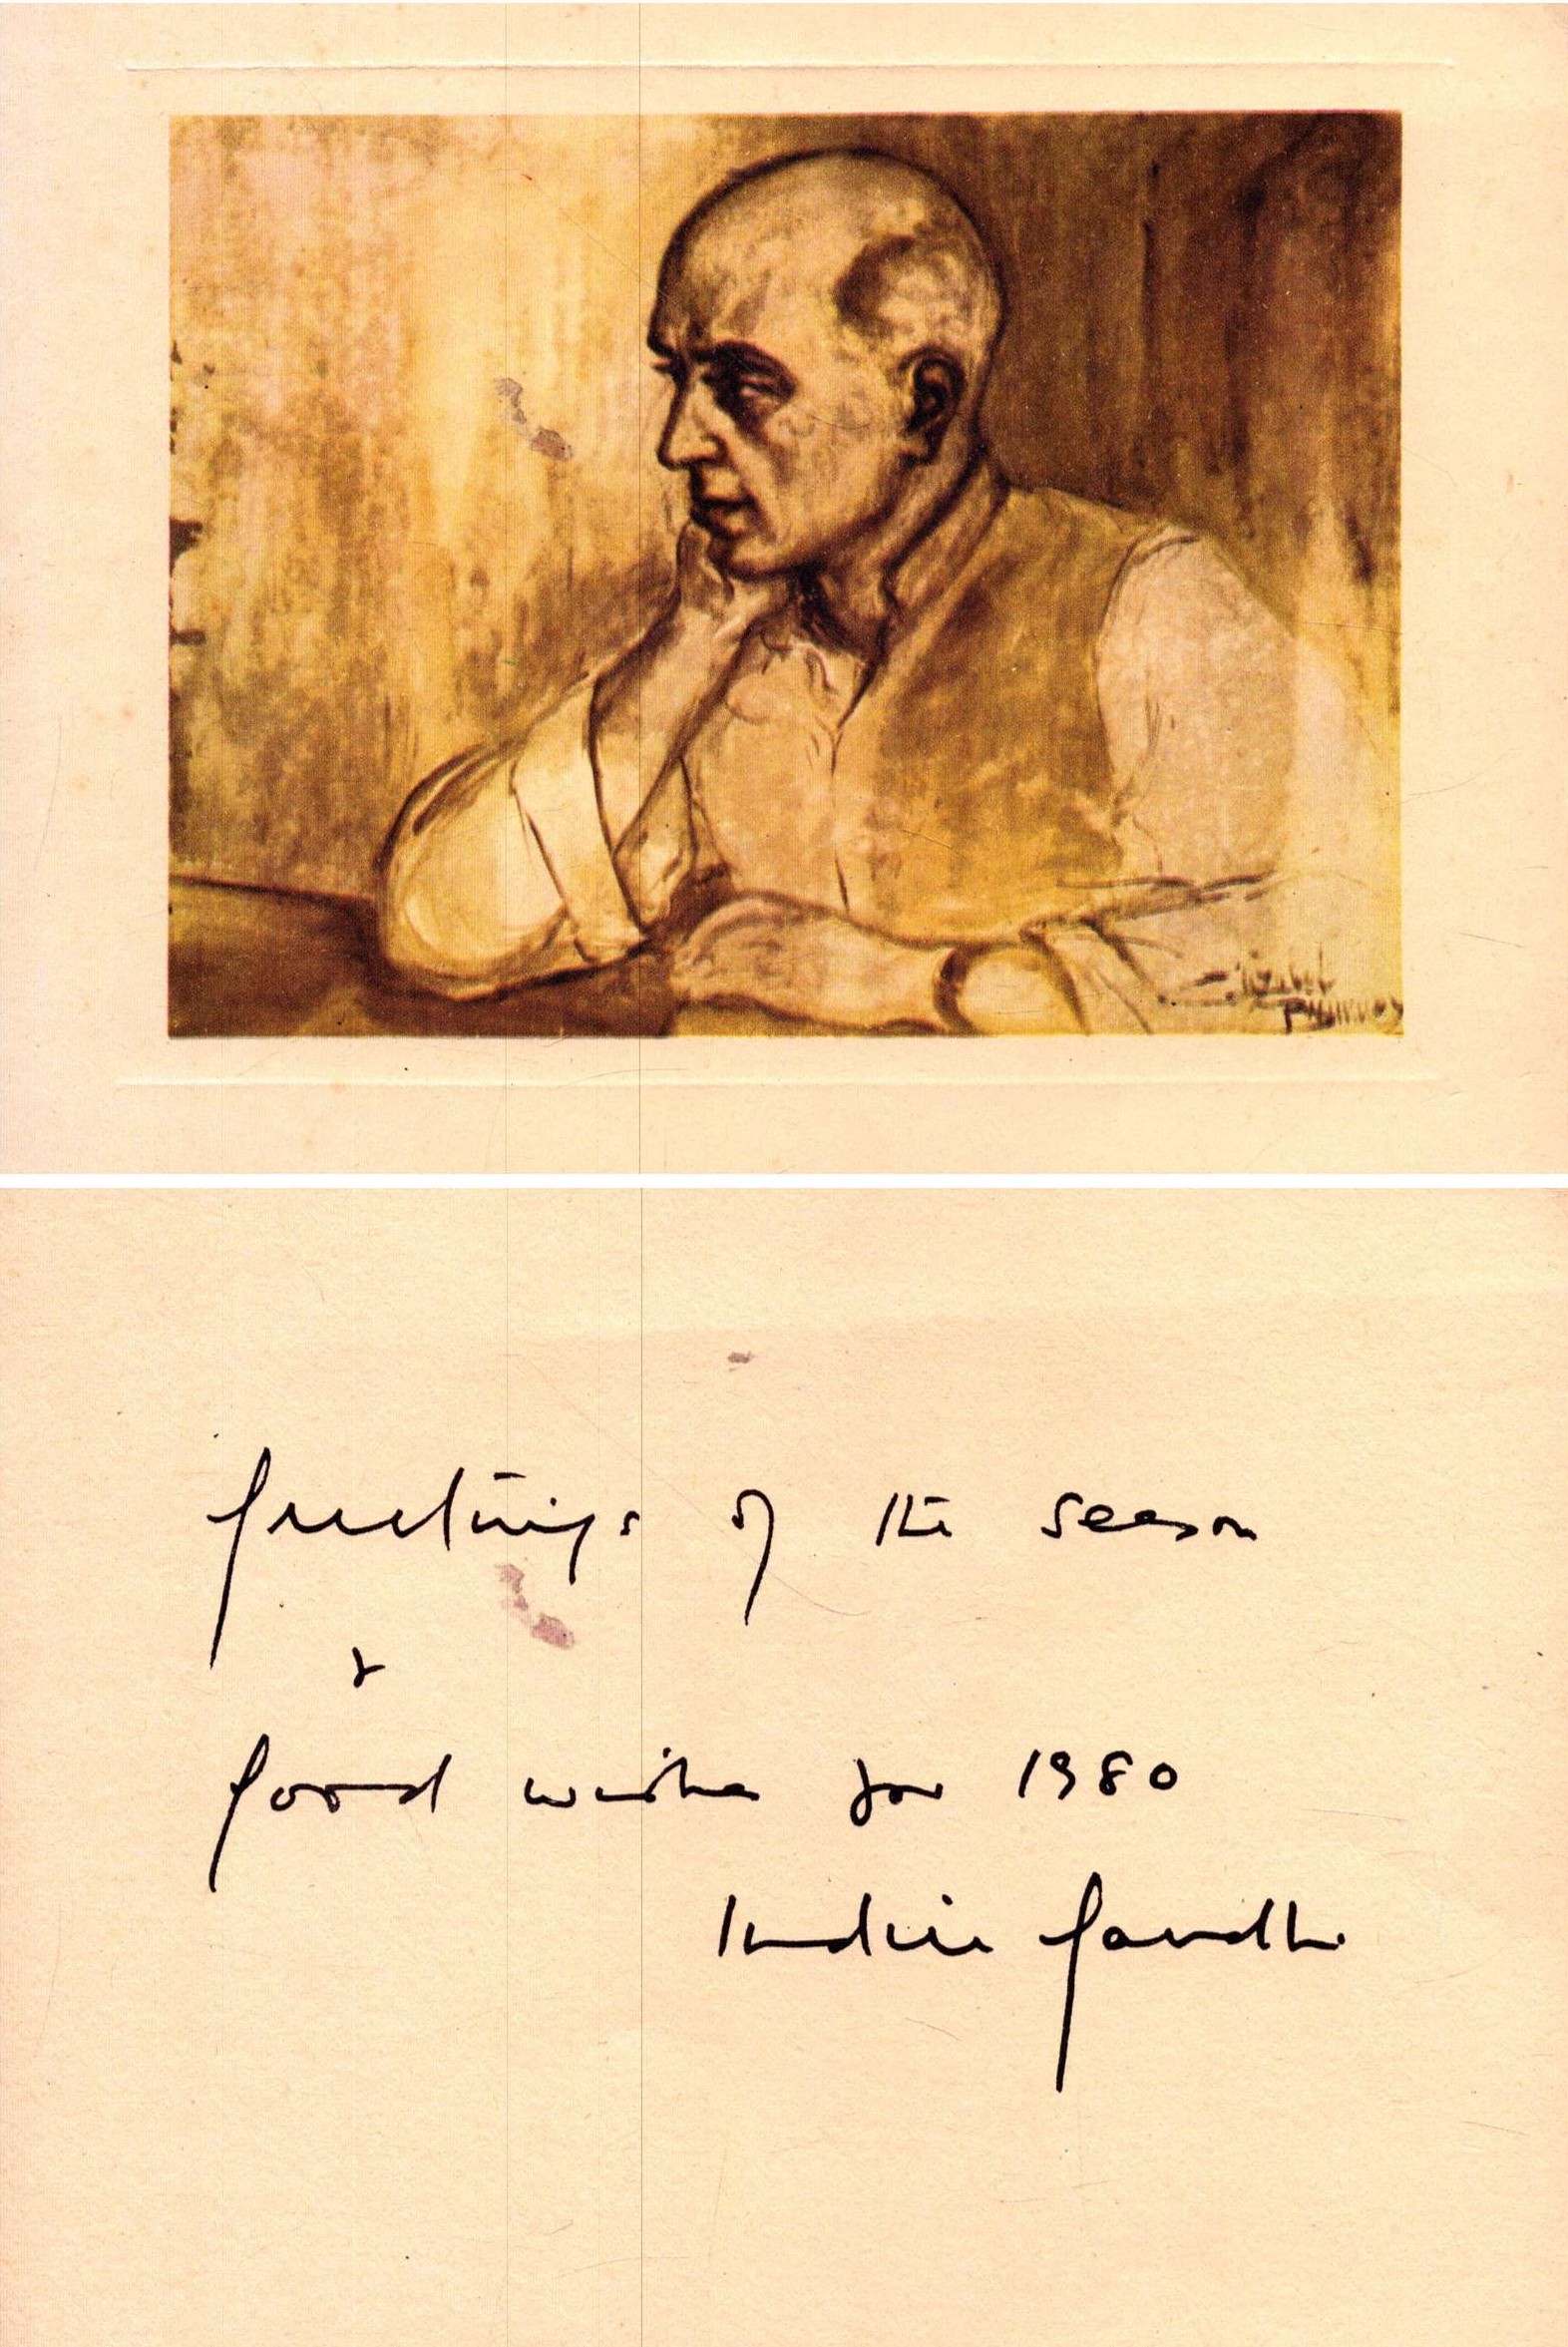 Elizabeth
Greetings of the season
&
Good wishes for 1980
Indira Gandhi